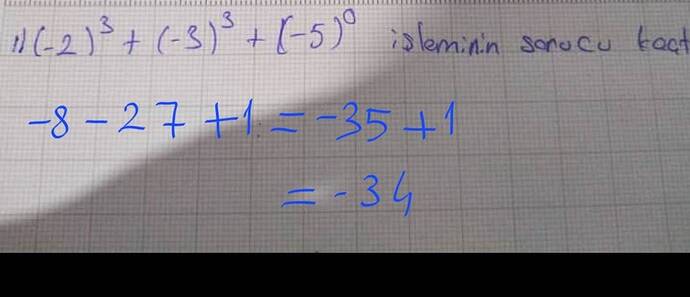 1) (-2)³ + (-3)³ + (-5)⁰ işleminin sonucu kaçt
-8 - 27 + 1 = -35 + 1
= -34